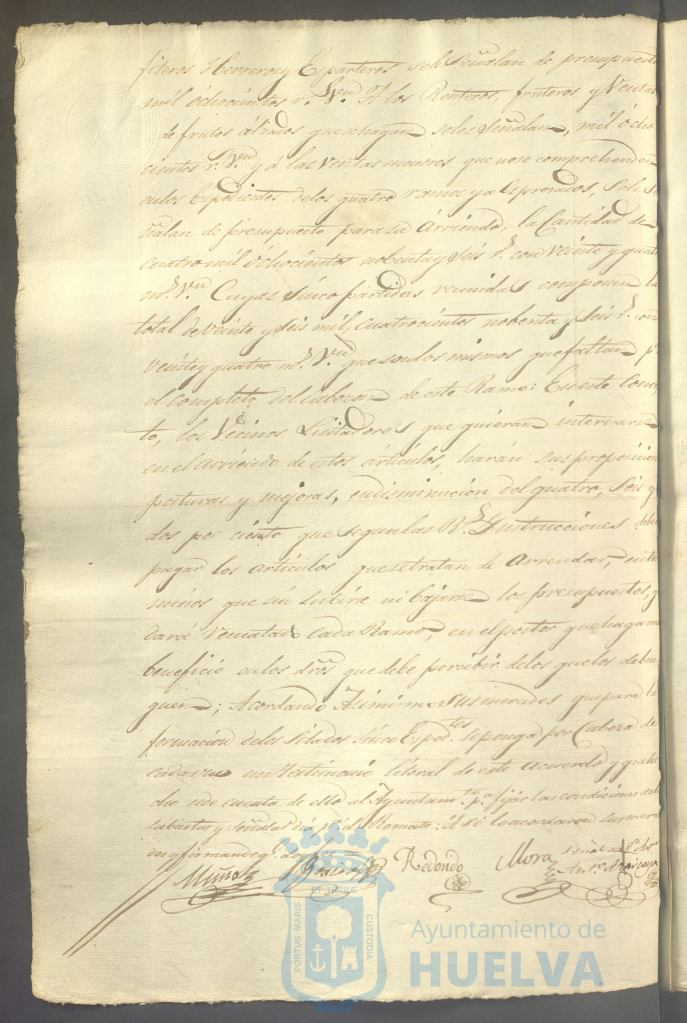 fiteros Herreros y Esparteros se le señalan de presupuesto
mil ochocientos r.s V.on A los Renteros, fruteros y Ventas
de frutos alzados que hagan se les señalan, mil ocho
cientos r.s V.on y a las ventas menores que no se comprehenden
en los Expedientes de los quatro ramos ya espresados, se le se
ñalan de presupuesto para su Arriendo, la Cantidad de
cuatro mil ochocientos nobenta y seis r.s con veinte y quatro
m.s V.on Cuyas sinco partidas reunidas componen la
total de veinte y seis mil, cuatrocientos nobenta y seis r.s con
veinte y quatro m.s V.on que son los mismos que faltan p.a
el completo del cabezon de este Ramo: En este conce
to, los Vecinos Licitadores que quieran interesarse
en el arriendo de estos artículos, harán sus proposicion
posturas y mejoras, en disminucion del quatro, seis y
dos por ciento que segun las R.s Instrucciones deben
pagar los articulos que se tratan de Arrendar, en ter
minos que sin subirse ni bajarse los presupuestos, q
dará rematado cada Ramo, en el postor que haga mas
beneficio en los dros que debe percibir de los que los deben
guen; Acordando Asimismo Sus mercedes que para la
formacion de los sitados sinco Esped.tes se ponga por Cabeza de
cada uno un testimonio literal de este acuerdo y que
dio de cuenta de ello al Ayuntam.to p.a fijar las condiciones de
subastas y señalar dia p.a el Remate: Asi lo acordaron sus merce
des y firman de q.e doy fee
Muñoz Redondo Mora
PORTUS MARIS ET TERRE CUSTODIA
Ayuntamiento de
HUELVA